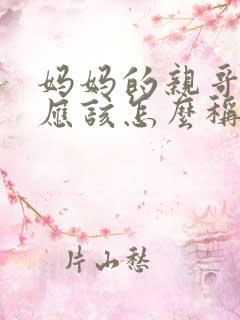 妈妈的親哥
應該怎麼稱
片山愁